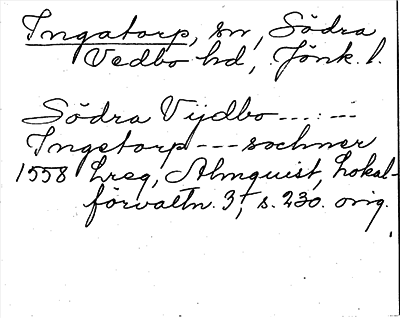 Ingatorp, sn, Södra
Vedbo hd, Jönk. l.
Södra Vijdbo --- : ---
Ingetorp --- sochner
1558 Lreg, Almquist, Lokal-
förvaltn. 3, s. 230. orig.